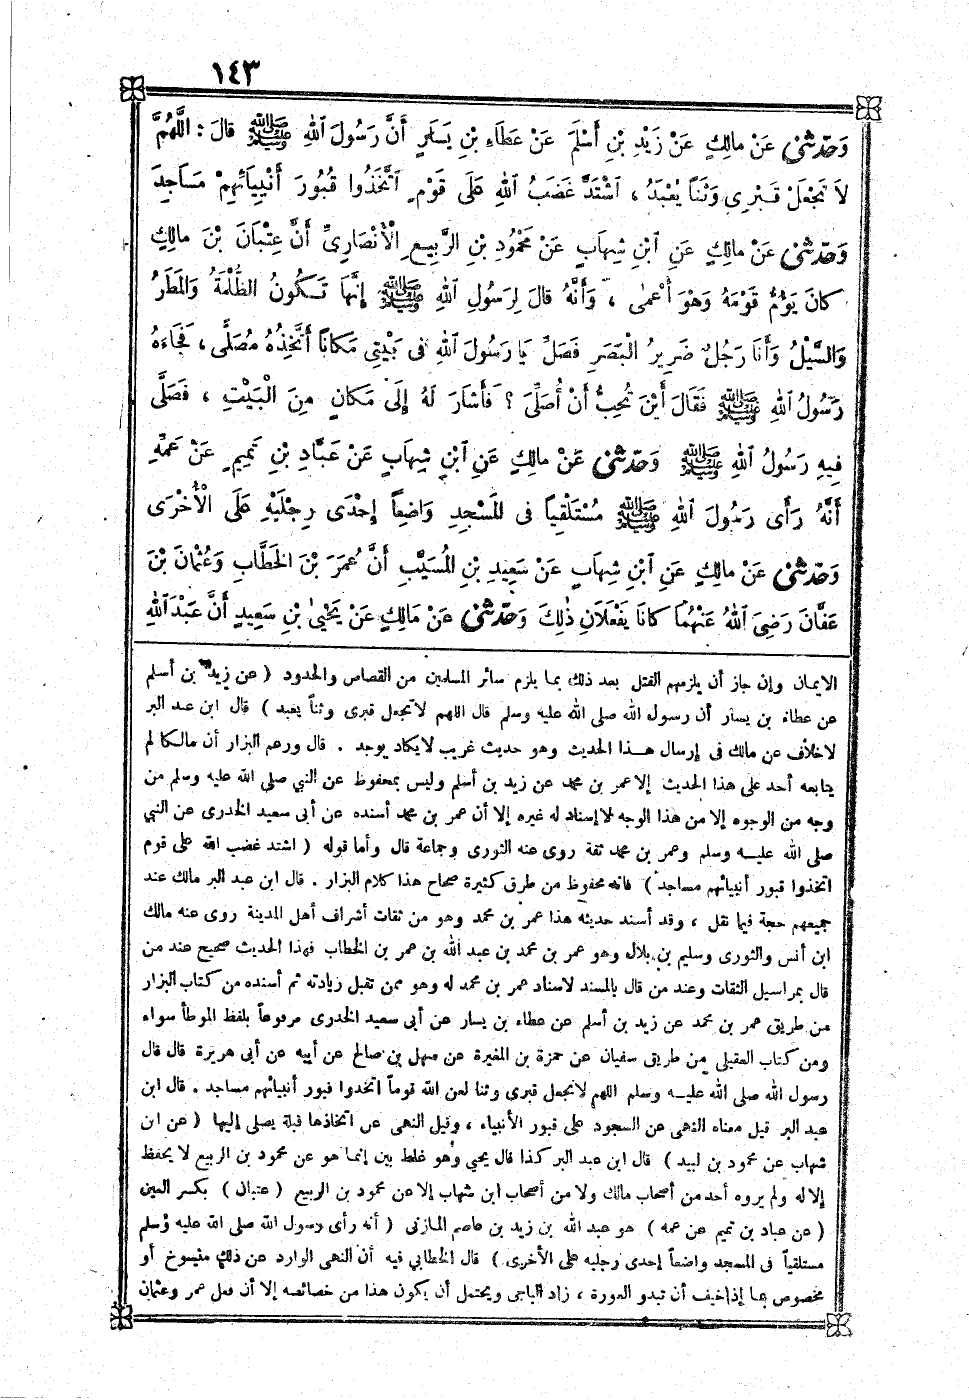 ١٤٣
وَحَدَّثَنِى عَنْ مالِكٍ عَنْ زَيْدِ بْنِ أَسْلَمَ عَنْ عَطَاءِ بْنِ يَسَارٍ أَنَّ رَسُولَ اللهِ ﷺ قالَ : اللَّهُمَّ
لاَ تَجْعَلْ قَبْرِى وَثَناً يُعْبَدُ ، اشْتَدَّ غَضَبُ اللهِ عَلَى قَوْمٍ اتَّخَذُوا قُبُورَ أَنْبِيَائِهِمْ مَسَاجِدَ
وَحَدَّثَنِى عَنْ مالِكٍ عَنِ ابْنِ شِهَابٍ عَنْ مَحْمُودِ بْنِ الرَّبِيعِ الْأَنْصَارِىِّ أَنَّ عِتْبَانَ بْنَ مالِكٍ
كانَ يَؤُمُّ قَوْمَهُ وَهْوَ أَعْمَى ، وَأَنَّهُ قالَ لِرَسُولِ اللهِ ﷺ إِنَّهَا تَكُونُ الظُّلْمَةُ وَالْمَطَرُ
وَالسَّيْلُ وَأَنَا رَجُلٌ ضَرِيرُ الْبَصَرِ فَصَلِّ يَا رَسُولَ اللهِ فى بَيْتِى مَكَاناً أَتَّخِذُهُ مُصَلًّى ، فَجَاءَهُ
رَسُولُ اللهِ ﷺ فَقَالَ أَيْنَ تُحِبُّ أَنْ أُصَلِّىَ ؟ فَأَشَارَ لَهُ إِلَى مَكَانٍ مِنَ الْبَيْتِ ، فَصَلَّى
فِيهِ رَسُولُ اللهِ ﷺ وَحَدَّثَنِى عَنْ مالِكٍ عَنِ ابْنِ شِهَابٍ عَنْ عَبَّادِ بْنِ تَمِيمٍ عَنْ عَمِّهِ
أَنَّهُ رَأَى رَسُولَ اللهِ ﷺ مُسْتَلْقِياً فى المَسْجِدِ وَاضِعاً إِحْدَى رِجْلَيْهِ عَلَى الْأُخْرَى
وَحَدَّثَنِى عَنْ مالِكٍ عَنِ ابْنِ شِهَابٍ عَنْ سَعِيدِ بْنِ الْمُسَيَّبِ أَنَّ عُمَرَ بْنَ الخَطَّابِ وَعُثْمَانَ بْنَ
عَفَّانَ رَضِىَ اللهُ عَنْهُمَا كانَا يَفْعَلَانِ ذٰلِكَ وَحَدَّثَنِى عَنْ مَالِكٍ عَنْ يَحْيىٰ بْنِ سَعِيدٍ أَنَّ عَبْدَ اللهِ
الايمان وإن جاز أن يلزمهم القتل بعد ذلك بما يلزم سائر المسلمين من القصاص والحدود ( عن زيد بن أسلم
عن عطاء بن يسار أن رسول الله صلى الله عليه وسلم قال اللهم لا تجعل قبرى وثناً يعبد ) قال ابن عبد البر
لاخلاف عن مالك فى إرسال هذا الحديث وهو حديث غريب لايكاد يوجد . قال وزعم البزار أن مالكا لم
يتابعه أحد على هذا الحديث إلا عمر بن محمد عن زيد بن أسلم وليس بمحفوظ عن النبي صلى الله عليه وسلم من
وجه من الوجوه إلا من هذا الوجه لاإسناد له غيره إلا أن عمر بن محمد أسنده عن أبى سعيد الخدرى عن النبي
صلى الله عليه وسلم وعمر بن محمد ثقة روى عنه الثورى وجماعة قال وأما قوله ( اشتد غضب الله على قوم
اتخذوا قبور أنبيائهم مساجد ) فانه محفوظ من طرق كثيرة صحاح هذا كلام البزار . قال ابن عبد البر مالك عند
جميعهم حجة فيما نقل ، وقد أسند حديثه هذا عمر بن محمد وهو من ثقات أشراف أهل المدينة روى عنه مالك
ابن أنس والثورى وسليم بن بلال وهو عمر بن محمد بن عبد الله بن عمر بن الخطاب فهذا الحديث صحيح عند من
قال بمراسيل الثقات وعند من قال بالمسند لاسناد عمر بن محمد له وهو ممن تقبل زيادته ثم أسنده من كتاب البزار
من طريق عمر بن محمد عن زيد بن أسلم عن عطاء بن يسار عن أبى سعيد الخدرى مرفوعاً بلفظ الموطأ سواء
ومن كتاب العقيلى من طريق سفيان عن حمزة بن المغيرة عن سهل بن صالح عن أبيه عن أبى هريرة قال قال
رسول الله صلى الله عليه وسلم اللهم لاتجعل قبرى وثنا لعن الله قوماً اتخذوا قبور أنبيائهم مساجد . قال ابن
عبد البر قيل معناه النهى عن السجود على قبور الأنبياء ، وقيل النهى عن اتخاذها قبلة يصلى إليها ( عن ابن
شهاب عن محمود بن لبيد ) قال ابن عبد البر كذا قال يحيى وهو غلط بين إنما هو عن محمود بن الربيع لا يحفظ
إلا له ولم يروه أحد من أصحاب مالك ولا من أصحاب ابن شهاب إلا عن محمود بن الربيع ( عتبان ) بكسر العين
( عن عباد بن تميم عن عمه ) هو عبد الله بن زيد بن عاصم المازنى ( أنه رأى رسول الله صلى الله عليه وسلم
مستلقياً فى المسجد واضعاً إحدى رجليه على الأخرى ) قال الخطابى فيه أن النهى الوارد عن ذلك منسوخ أو
مخصوص بما إذا خيف أن تبدو العورة ، زاد الباجى ويحتمل أن يكون هذا من خصائصه إلا أن فعل عمر وعثمان